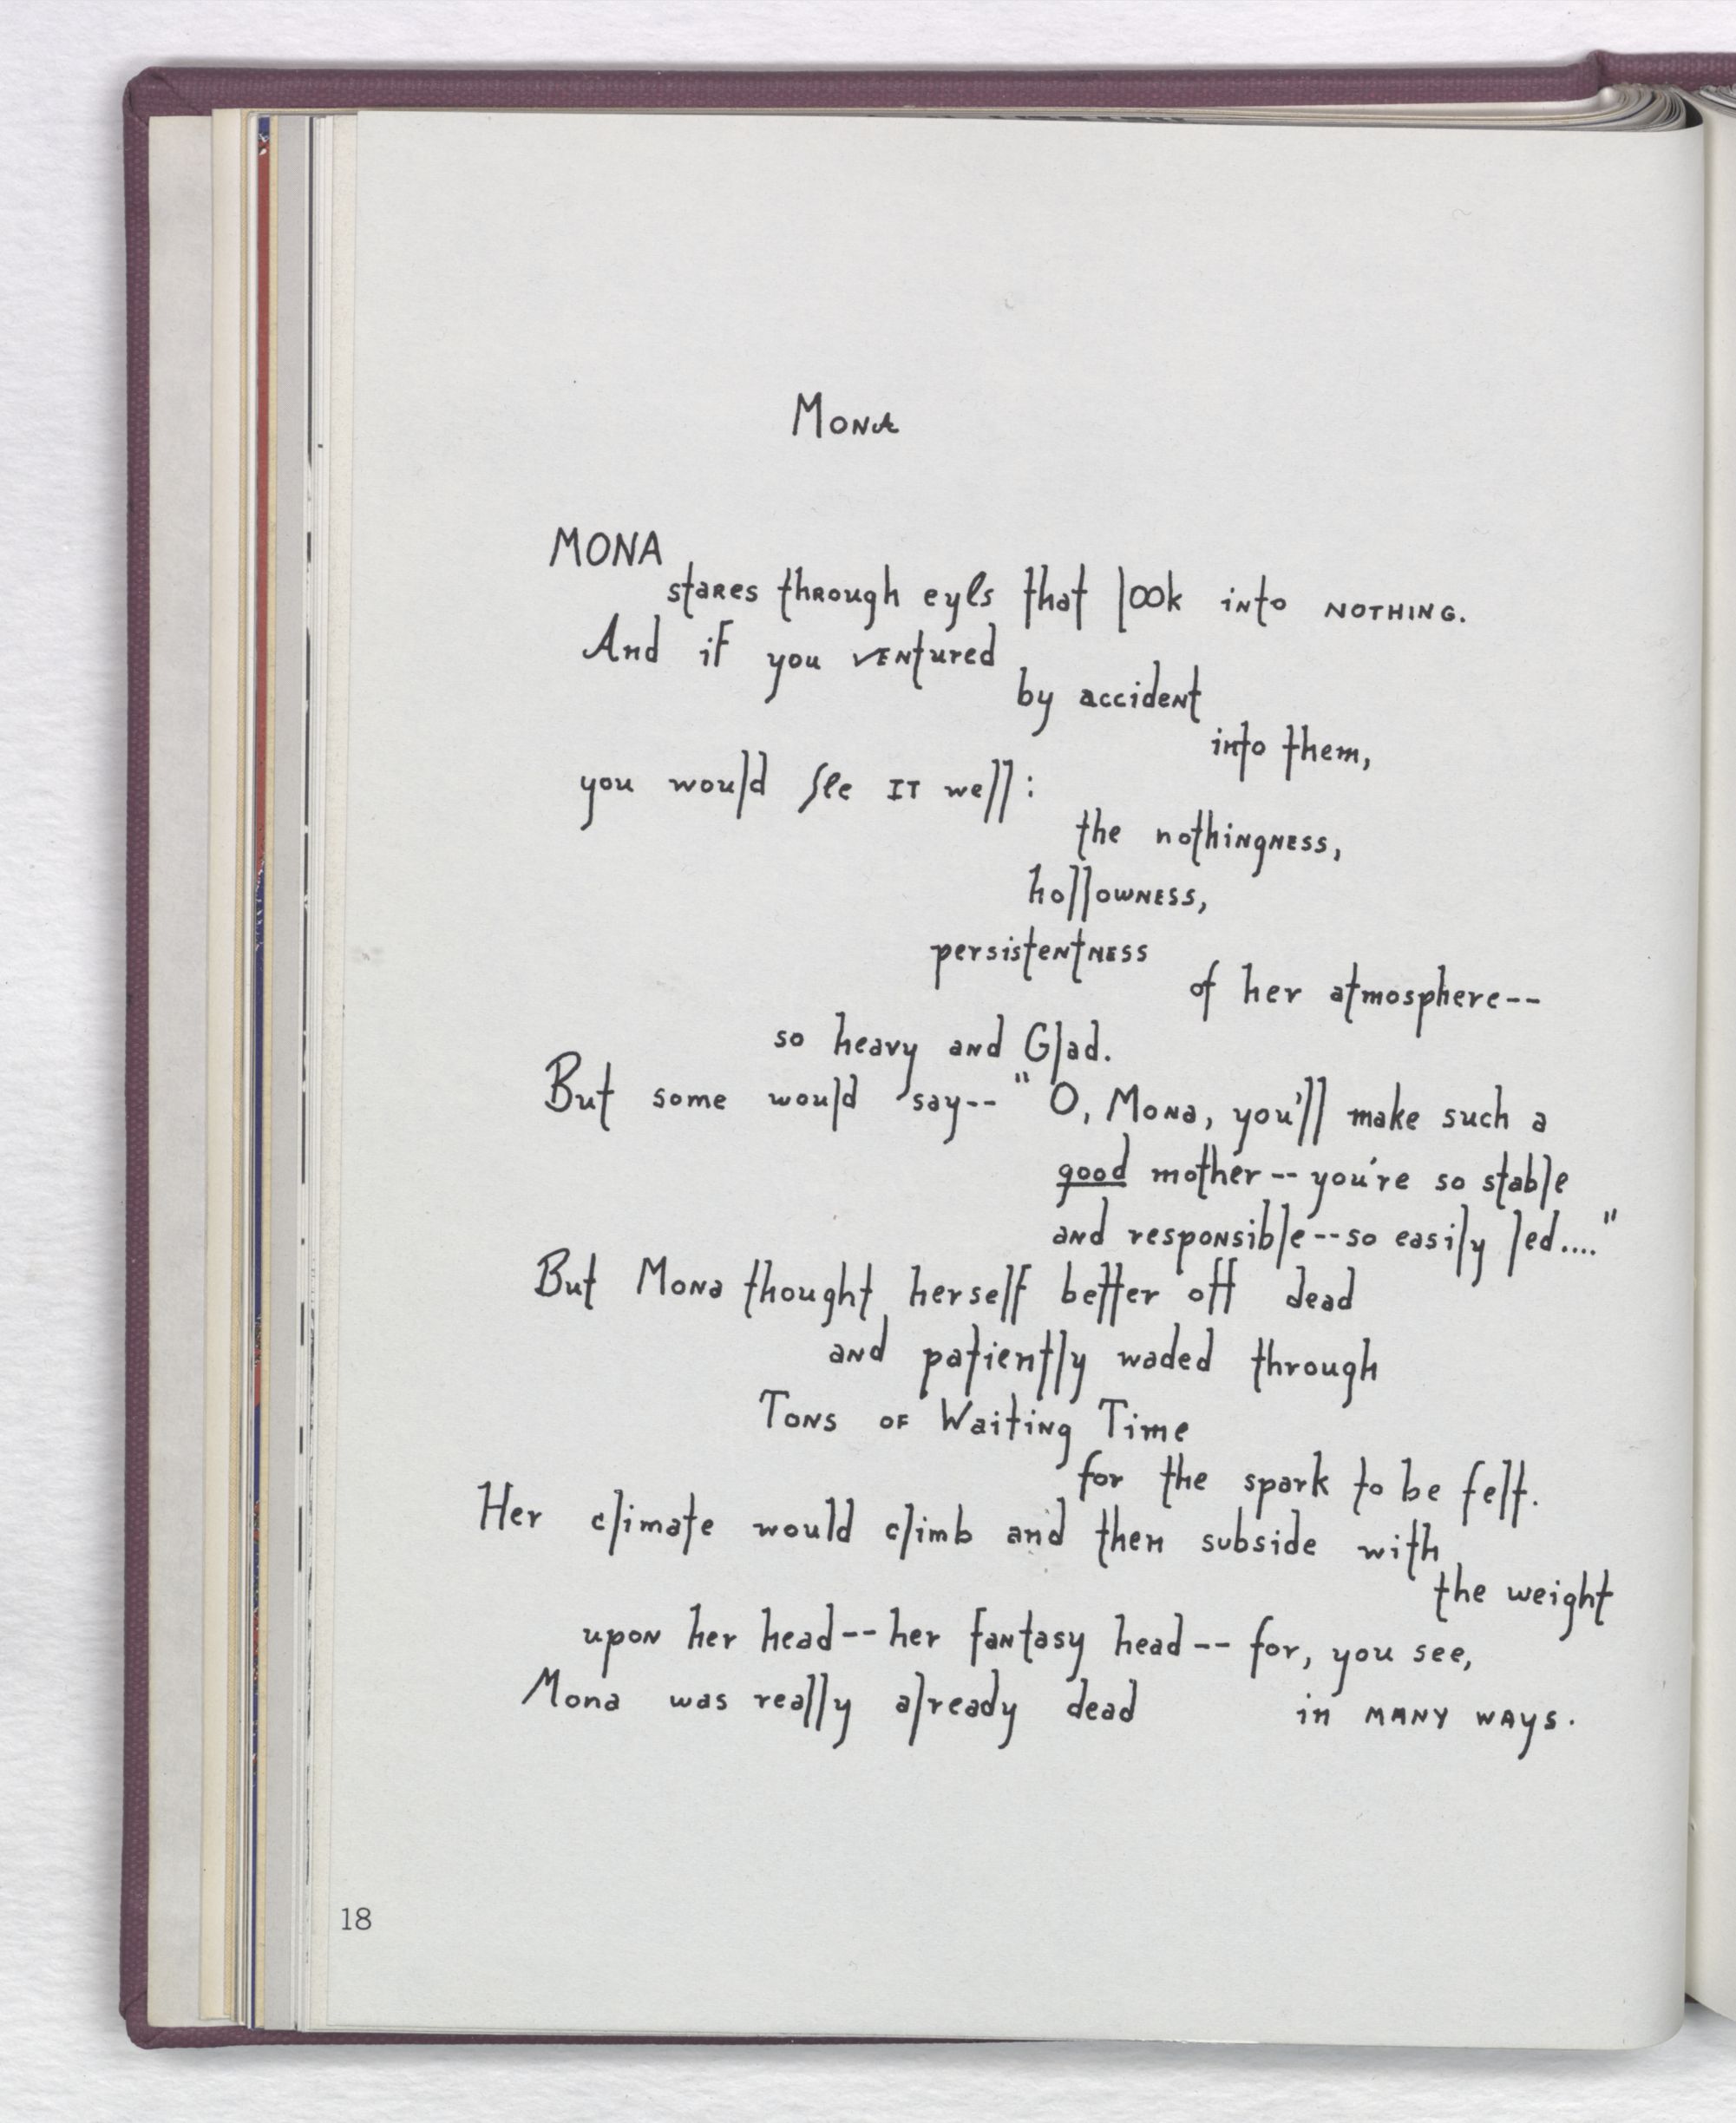 Mona
MONA
stares through eyes that look into NOTHING.
And if you ventured
by accident
into them,
you would see IT well:
the nothingness,
hollowness,
persistentness
of her atmosphere--
so heavy and Glad.
But some would say--" O, Mona, you'll make such a
good mother--you're so stable
and responsible--so easily led...."
But Mona thought herself better off dead
and patiently waded through
Tons of Waiting Time
for the spark to be felt.
Her climate would climb and then subside with
the weight
upon her head--her fantasy head--for, you see,
Mona was really already dead in MANY WAYS.
18